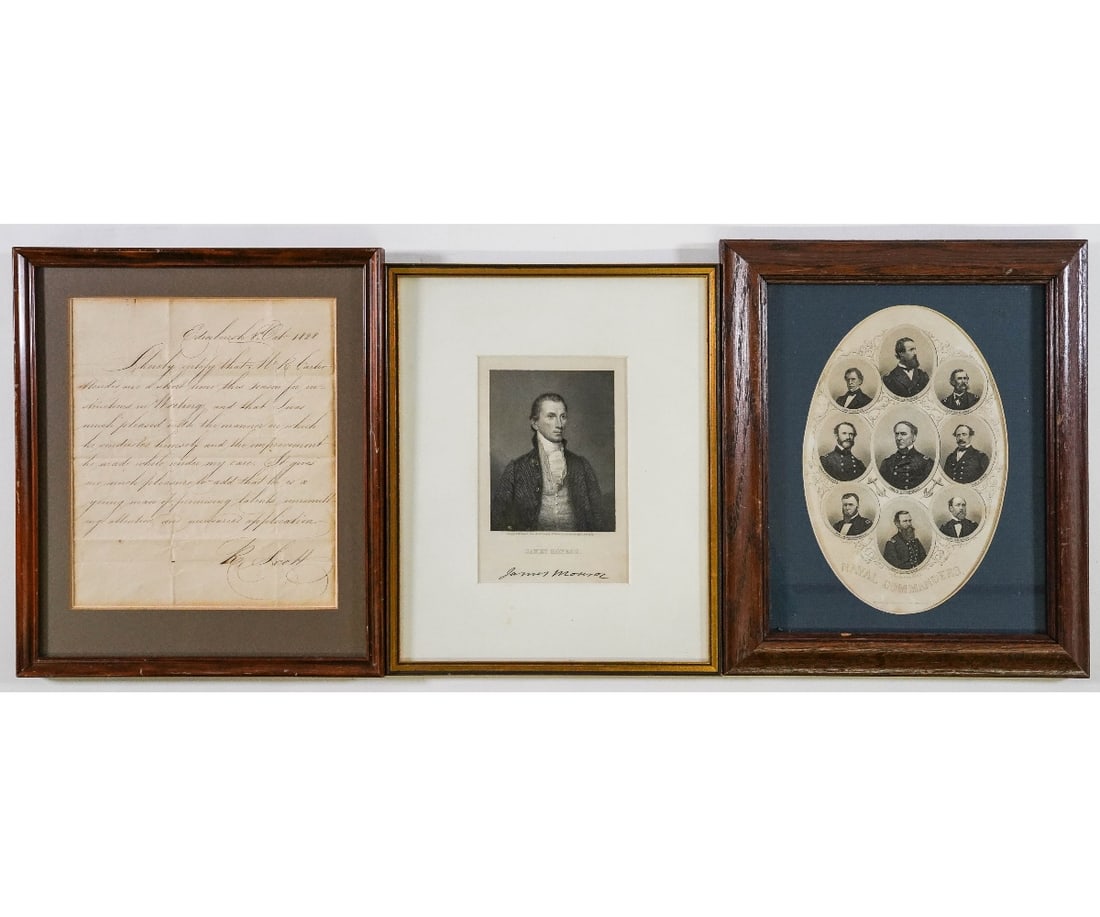 Edinburgh Oct 1828
I hereby certify that Mr R Carter
attended me this season for in-
structions in and that I was
much pleased with the manner in which
he conducted himself and the improvement
he made while under my care. It gives
me much pleasure to add that he is a
young man of promising talents
my attention and application
R. Scott
JAMES MONROE.
James Monroe
NAVAL COMMANDERS